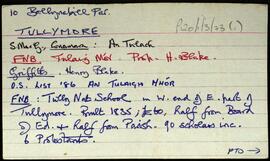 10 Ballynahill Par.
P120/1/3/23 (1)
TULLYMORE
An Tulach
FNB. Tulaig Mór Prop. H. Blake.
Griffiths. Henry Blake.
O.S. LIST '86 AN TULAIGH MHÓR
FNB: Tully Nat School in W. end of E. part of
Tullymore. Built 1835, £ to, Half from Board
of Ed. + Half from Parish. 90 scholars inc.
6 Protestants.
PTO →